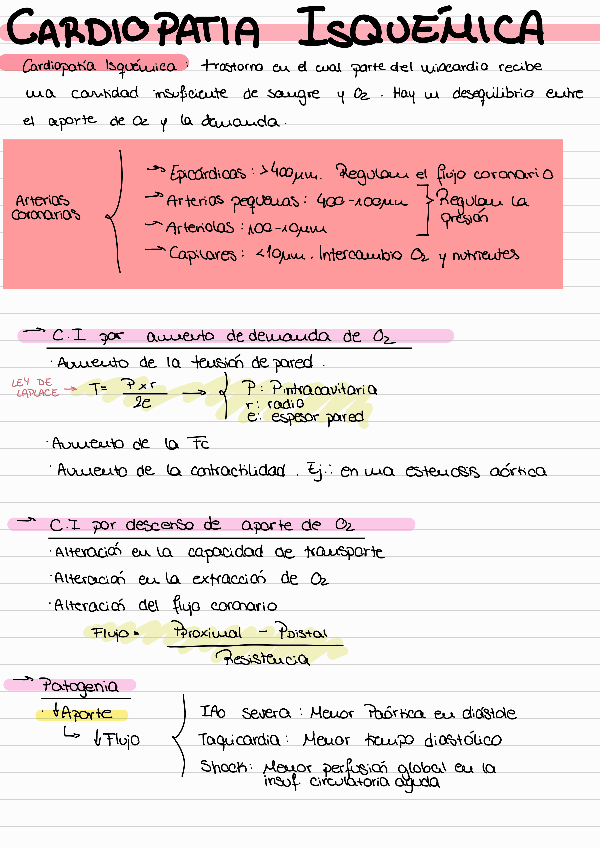 CARDIOPATIA ISQUÉMICA
Cardiopatía Isquémica: trastorno en el cual parte del miocardio recibe
una cantidad insuficiente de sangre y O2. Hay un desequilibrio entre
el aporte de O2 y la demanda.
Arterias coronarias
→ Epicárdicas: >400μm. Regulan el flujo coronario
→ Arterias pequeñas: 400-100μm
→ Arteriolas: 100-10μm
Regulan la presión
→ Capilares: <10μm. Intercambio O2 y nutrientes
→ C.I por aumento de demanda de O2
· Aumento de la tensión de pared.
LEY DE LAPLACE → T = P x r / 2e →
P: Pintracavitaria
r: radio
e: espesor pared
· Aumento de la Fc
· Aumento de la contractilidad. Ej.: en una estenosis aórtica
→ C.I por descenso de aporte de O2
· Alteración en la capacidad de transporte
· Alteración en la extracción de O2
· Alteración del flujo coronario
Flujo = Pproximal - Pdistal / Resistencia
→ Patogenia
· ↓Aporte
↳ ↓Flujo
IAo severa: Menor Paórtica en diástole
Taquicardia: Menor tiempo diastólico
Shock: Menor perfusión global en la
insuf circulatoria aguda